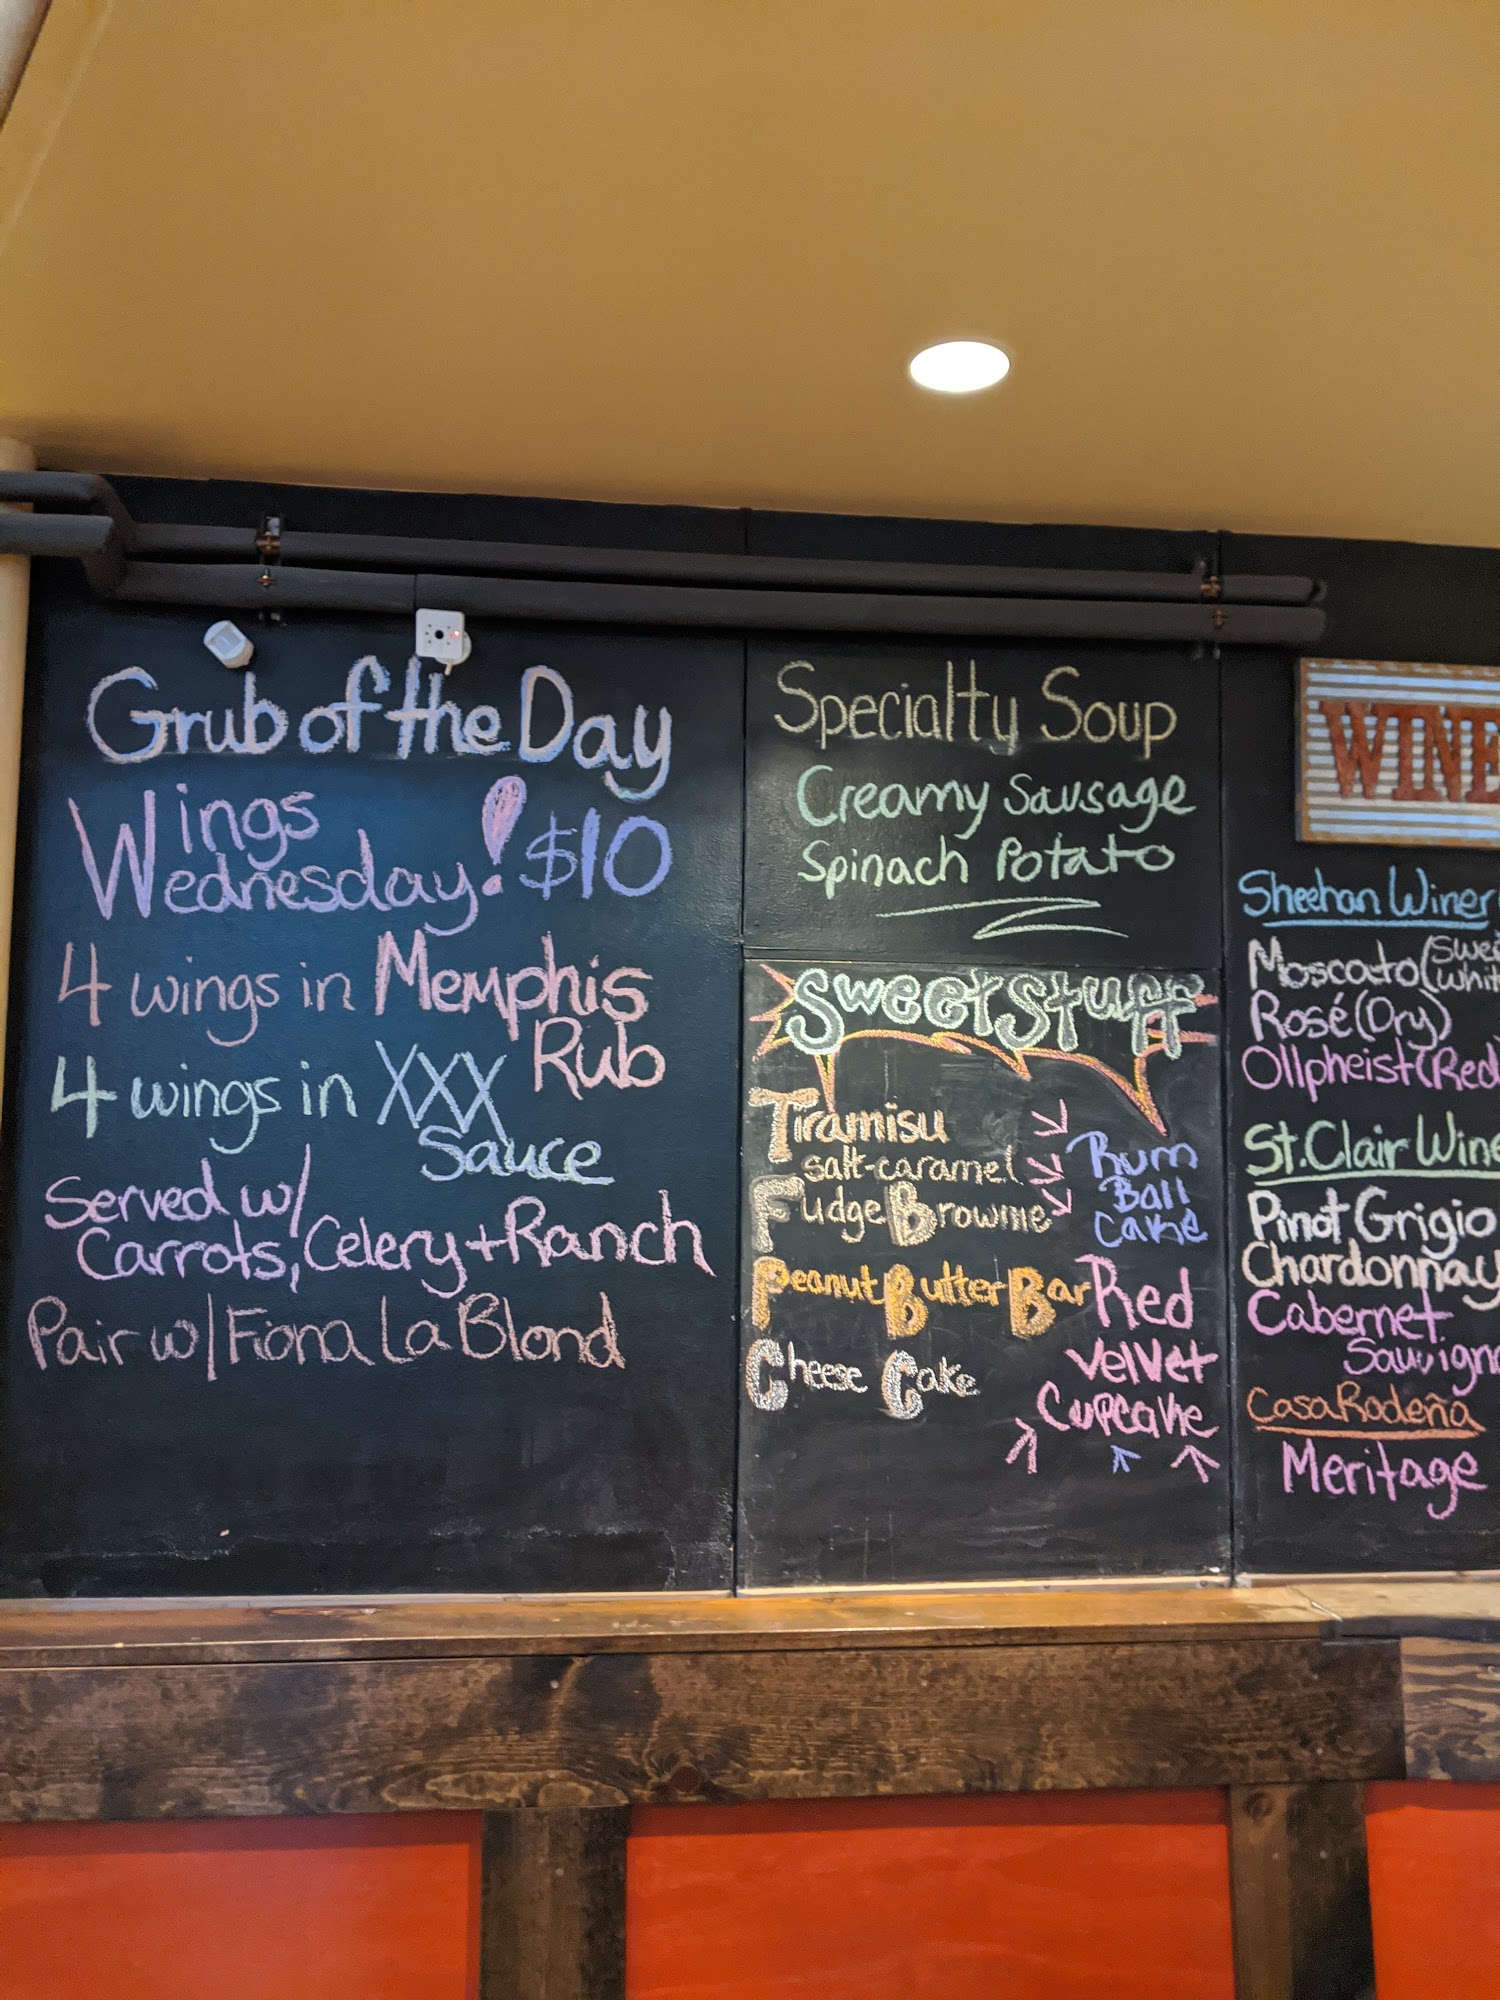 Grub of the Day
Wings
Wednesday! $10
4 wings in Memphis
Rub
4 wings in XXX
Sauce
Served w/
Carrots, Celery + Ranch
Pair w/ Fiona La Blond
Specialty Soup
Creamy Sausage
Spinach Potato
Sweet Stuff
Tiramisu
salt-caramel
Fudge Brownie
Peanut Butter Bar
Cheese Cake
Rum
Ball
Cake
Red
Velvet
Cupcake
WINE
Sheehan Winer
Moscato (Swe
Whit
Rosé (Dry)
Ollpheist (Red
St. Clair Wine
Pinot Grigio
Chardonnay
Cabernet
Sauvign
Casa Rodeña
Meritage